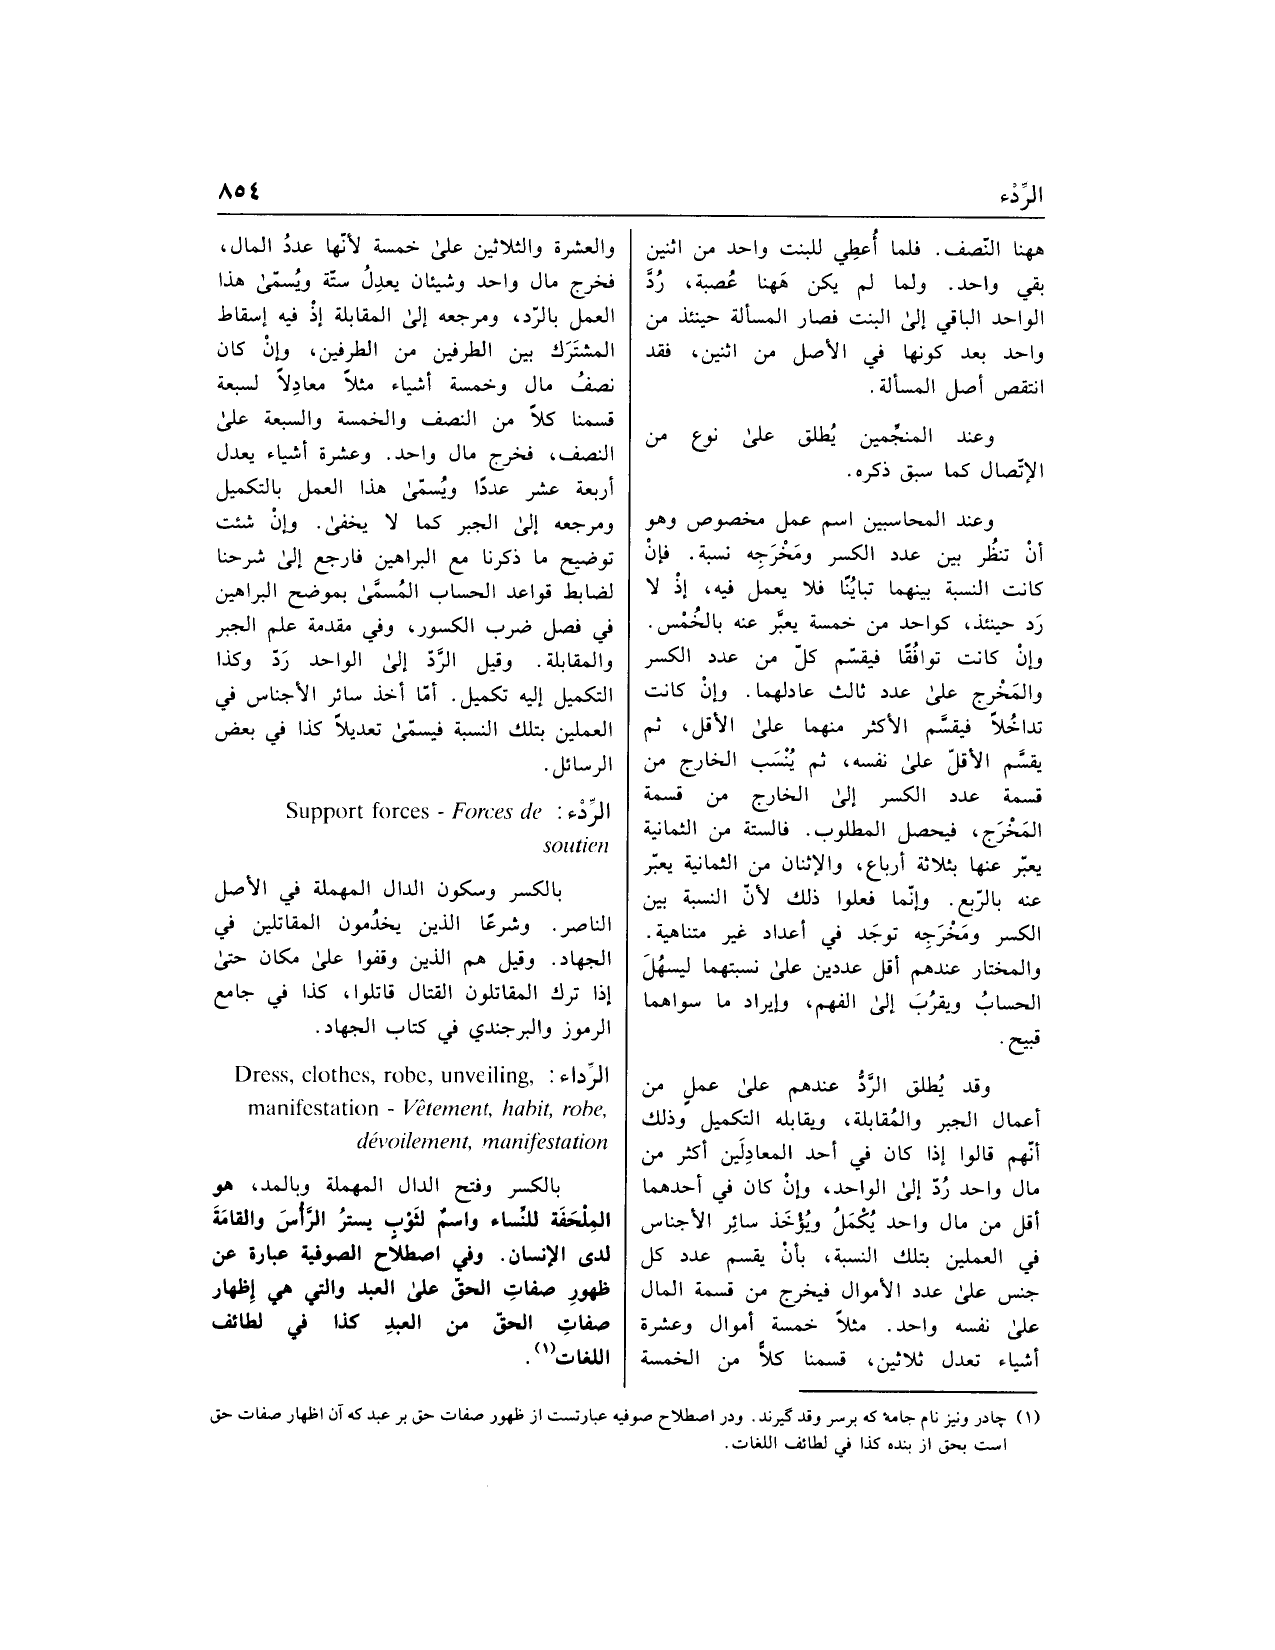 الرِّدْء
٨٥٤
ههنا النّصف. فلما أُعطِي للبنت واحد من اثنين
بقي واحد. ولما لم يكن هَهنا عُصبة، رُدَّ
الواحد الباقي إلىٰ البنت فصار المسألة حينئذ من
واحد بعد كونها في الأصل من اثنين، فقد
انتقص أصل المسألة.
وعند المنجِّمين يُطلق علىٰ نوع من
الإتّصال كما سبق ذكره.
وعند المحاسبين اسم عمل مخصوص وهو
أنْ تنظُر بين عدد الكسر ومَخْرَجِه نسبة. فإنْ
كانت النسبة بينهما تبايُنًا فلا يعمل فيه، إذْ لا
رَد حينئذ، كواحد من خمسة يعبَّر عنه بالخُمْس.
وإنْ كانت توافُقًا فيقسّم كلّ من عدد الكسر
والمَخْرج علىٰ عدد ثالث عادلهما. وإنْ كانت
تداخُلاً فيقسَّم الأكثر منهما علىٰ الأقل، ثم
يقسَّم الأقلّ علىٰ نفسه، ثم يُنْسَب الخارج من
قسمة عدد الكسر إلىٰ الخارج من قسمة
المَخْرَج، فيحصل المطلوب. فالستة من الثمانية
يعبّر عنها بثلاثة أرباع، والإثنان من الثمانية يعبّر
عنه بالرّبع. وإنّما فعلوا ذلك لأنّ النسبة بين
الكسر ومَخْرَجِه توجَد في أعداد غير متناهية.
والمختار عندهم أقل عددين علىٰ نسبتهما ليسهُلَ
الحسابُ ويقرُبَ إلىٰ الفهم، وإيراد ما سواهما
قبيح.
وقد يُطلق الرَّدُّ عندهم علىٰ عملٍ من
أعمال الجبر والمُقابلة، ويقابله التكميل وذلك
أنّهم قالوا إذا كان في أحد المعادِلَين أكثر من
مال واحد رُدّ إلىٰ الواحد، وإنْ كان في أحدهما
أقل من مال واحد يُكْمَلُ ويُؤْخَذ سائِر الأجناس
في العملين بتلك النسبة، بأنْ يقسم عدد كل
جنس علىٰ عدد الأموال فيخرج من قسمة المال
علىٰ نفسه واحد. مثلاً خمسة أموال وعشرة
أشياء تعدل ثلاثين، قسمنا كلاًّ من الخمسة
والعشرة والثلاثين علىٰ خمسة لأنّها عددُ المال،
فخرج مال واحد وشيئان يعدِلُ ستّة ويُسمّىٰ هذا
العمل بالرّد، ومرجعه إلىٰ المقابلة إذْ فيه إسقاط
المشتَرَك بين الطرفين من الطرفين، وإنْ كان
نصفُ مال وخمسة أشياء مثلاً معادِلاً لسبعة
قسمنا كلاً من النصف والخمسة والسبعة علىٰ
النصف، فخرج مال واحد. وعشرة أشياء يعدل
أربعة عشر عددًا ويُسمّىٰ هذا العمل بالتكميل
ومرجعه إلىٰ الجبر كما لا يخفىٰ. وإنْ شئت
توضيح ما ذكرنا مع البراهين فارجع إلىٰ شرحنا
لضابط قواعد الحساب المُسمَّىٰ بموضح البراهين
في فصل ضرب الكسور، وفي مقدمة علم الجبر
والمقابلة. وقيل الرَّدّ إلىٰ الواحد رَدّ وكذا
التكميل إليه تكميل. أمّا أخذ سائر الأجناس في
العملين بتلك النسبة فيسمّىٰ تعديلاً كذا في بعض
الرسائل.
الرِّدْء: Support forces - Forces de
soutien
بالكسر وسكون الدال المهملة في الأصل
الناصر. وشرعًا الذين يخدُمون المقاتلين في
الجهاد. وقيل هم الذين وقفوا علىٰ مكان حتىٰ
إذا ترك المقاتلون القتال قاتلوا، كذا في جامع
الرموز والبرجندي في كتاب الجهاد.
الرِّداء: Dress, clothes, robe, unveiling,
manifestation - Vêtement, habit, robe,
dévoilement, manifestation
بالكسر وفتح الدال المهملة وبالمد، هو
المِلْحَفَة للنِّساء واسمٌ لثَوْبٍ يسترُ الرَّأْسَ والقامَةَ
لدى الإنسان. وفي اصطلاح الصوفية عبارة عن
ظهورِ صفاتِ الحقّ علىٰ العبد والتي هي إِظهار
صفاتِ الحقّ من العبدِ كذا في لطائف
اللغات(١).
(١) چادر ونيز نام جامهٔ كه برسر وقد گيرند. ودر اصطلاح صوفيه عبارتست از ظهور صفات حق بر عبد كه آن اظهار صفات حق
است بحق از بنده كذا في لطائف اللغات.